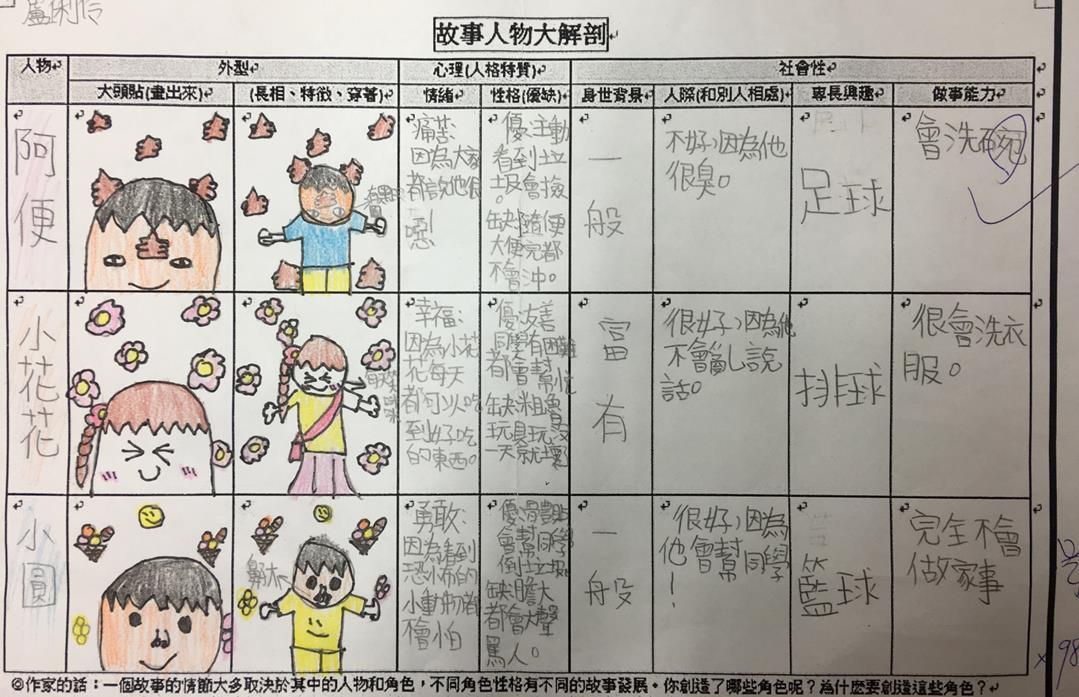 故事人物大解剖
人物
外型
心理(人格特質)
社會性
大頭貼(畫出來)
(長相、特徵、穿著)
情緒
性格(優缺)
身世背景
人際(和別人相處)
專長興趣
做事能力
阿便
痛苦:
因為大家
都說他很
噁!
優:主動
看到垃
圾會撿
。
缺:隨便
大便完都
不會沖。
一般
不好,因為他
很臭。
足球
會洗碗
小花花
幸福:
因為小花
花每天
都可以吃
到好吃
的東西。
優:友善
同學有困難
都會幫忙
缺:粗魯
玩具玩沒
一天就壞
富有
很好,因為他
不會亂說
話。
排球
很會洗衣
服。
小圓
勇敢:
因為看到
恐怖的
小動物都
不會怕
會幫同學
倒垃圾
缺:膽大
都會大聲
罵人。
一般
很好,因為
他會幫同學
!
籃球
完全不會
做家事
◎作家的話:一個故事的情節大多取決於其中的人物和角色,不同角色性格有不同的故事發展。你創造了哪些角色呢?為什麼要創造這些角色?